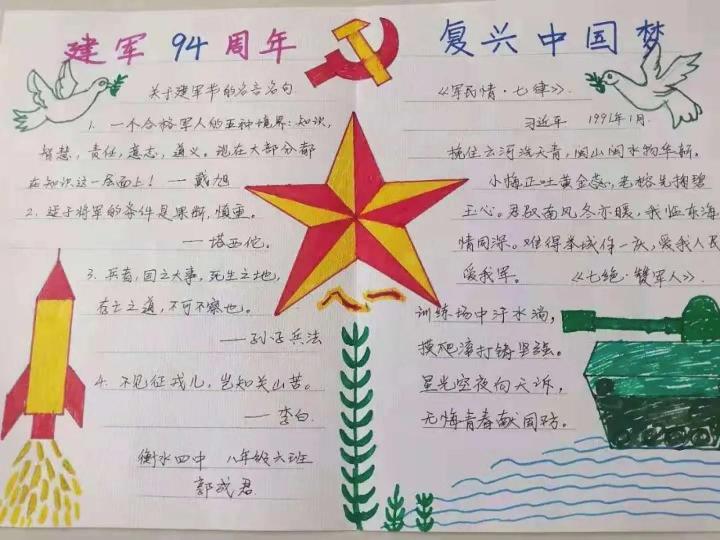 建军94周年
关于建军节的名言名句.
1. 一个合格军人的五种境界:知识,
智慧,责任,意志,道义。现在大部分都
在知识这一层面上! — 戴旭
2. 选于将军的条件是果断,慎重。
——塔西佗。
3. 兵者,国之大事,死生之地,
存亡之道,不可不察也。
——孙子兵法
4. 不见征戍儿,岂知关山苦。
——李白.
衡水四中 八年级六班
郭成君
复兴中国梦
《军民情·七律》.
习近平 1991年1月.
挽住云河洗天青,闽山闽水物华新。
小梅正吐黄金蕊,老榕先掬碧
玉心。君驭南风冬亦暖,我临东海
情同深。难得举城作一庆,爱我人民
爱我军。 《七绝·赞军人》.
训练场中汗水淌,
摸爬滚打铸坚强。
星光空夜向天诉,
无悔青春献国防。